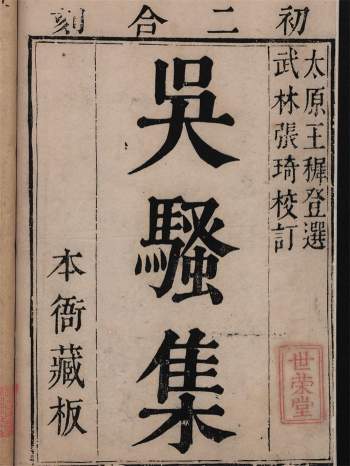 初二合刻
太原王穉登選
武林張琦校訂
吳騷集
本衙藏板
世榮堂